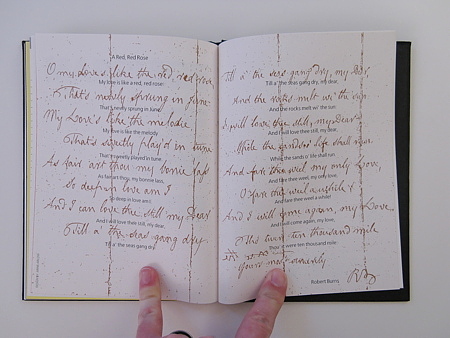 A Red, Red Rose
O my Love's like the red, red rose,
My love is like a red, red rose
That's newly sprung in June
That's newly sprung in June.
My Love's like the melodie
My love is like the melody
That's sweetly play'd in tune
That's sweetly played in tune.
As fair art thou my bonie lass
As fair art thou, my bonnie lass,
So deep in love am I
So deep in love am I,
And I can love thee still my Dear
And I will love thee still, my dear,
Till a' the seas gang dry
Till a' the seas gang dry.
Till a' the seas gang dry, my Dear,
Till a' the seas gang dry, my dear,
And the rocks melt wi' the sun
And the rocks melt wi' the sun
I will love thee still, my Dear
And I will love thee still, my dear,
While the sands o' life shall run.
While the sands o' life shall run.
And fare thee weel my only Love,
And fare thee weel, my only love,
O fare thee weel awhile
And fare thee weel a while!
And I will come again, my Love
And I will come again, my love,
Tho' 'twere ten thousand mile
Though it were ten thousand mile.
Yours most sincerely
RB
Robert Burns